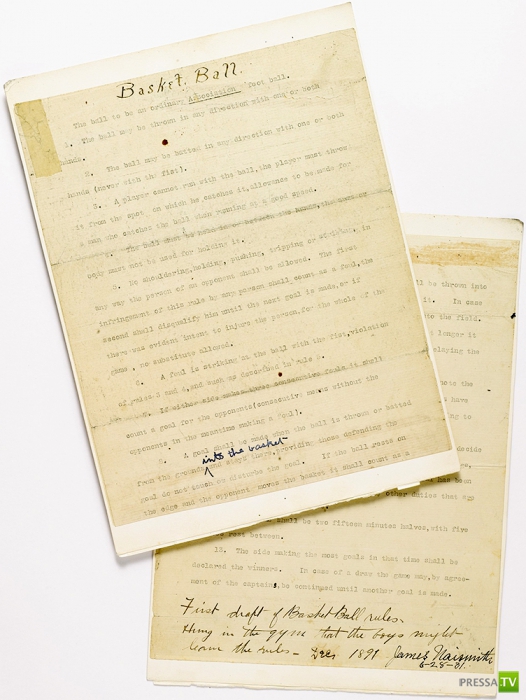 Basket Ball.
The ball to be an ordinary Association foot ball.
1. The ball may be thrown in any direction with one or both
hands.
2. The ball may be batted in any direction with one or both
hands (never with the fist).
3. A player cannot run with the ball, the player must throw
it from the spot on which he catches it, allowance to be made for
a man who catches the ball when running at a good speed.
4. The ball must be held in or between the hands, the arms or
body must not be used for holding it.
5. No shouldering, holding, pushing, tripping or striking in
any way the person of an opponent shall be allowed. The first
infringement of this rule by any person shall count as a foul, the
second shall disqualify him until the next goal is made, or if
there was evident intent to injure the person, for the whole of the
game, no substitute allowed.
6. A foul is striking at the ball with the fist, violation
of rules 3 and 4, and such as described in rule 5.
7. If either side makes three consecutive fouls it shall
count a goal for the opponents (consecutive means without the
opponents in the meantime making a foul).
8. A goal shall be made when the ball is thrown or batted
into the basket
from the grounds and stays there, providing those defending the
goal do not touch or disturbe the goal. If the ball rests on
the edge and the opponent moves the basket it shall count as a
ll be thrown into
it. In case
to the field.
longer it
elaying the
note the
have
ng to
decide
has been
other duties that are
shall be two fifteen minutes halves, with five
rest between.
13. The side making the most goals in that time shall be
declared the winners. In case of a draw the game may, by agree-
ment of the captains, be continued until another goal is made.
First draft of Basket Ball rules.
Hung in the gym that the boys might
learn the rules - Dec 1891 James Naismith
6-28-31.
PRESSA.TV